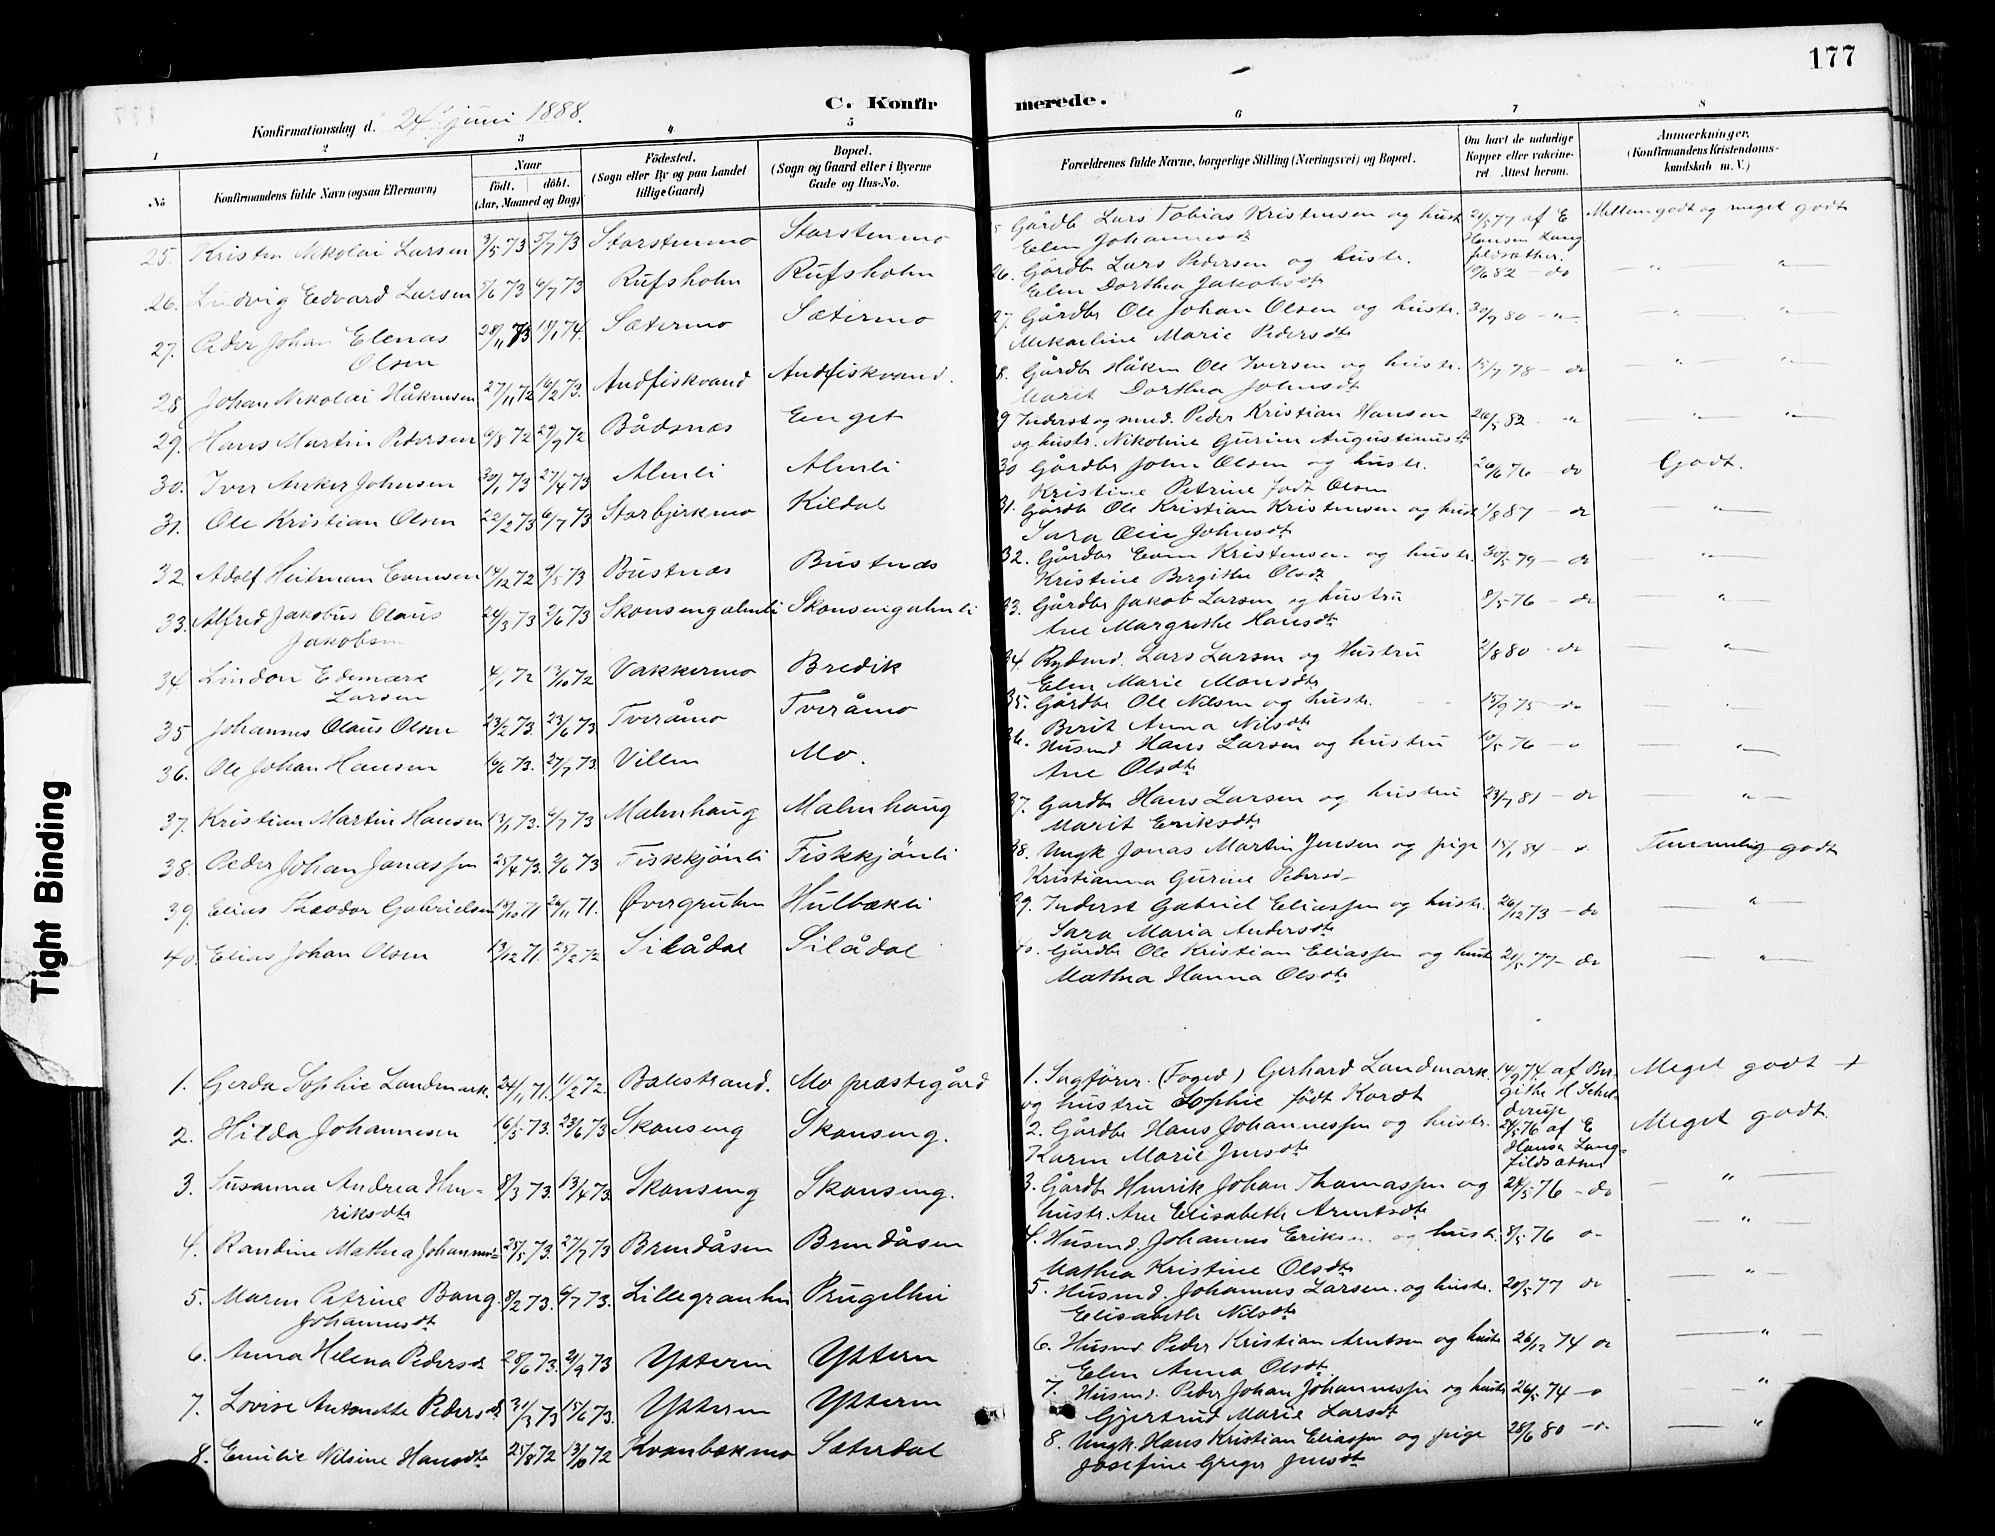 177
C. Konfirmerede.
Konfirmationsdag d. 24de juni 1888.
1 2 3 4 5 6 7 8
No
Konfirmandens fulde Navn (ogsaa Efternavn)
Naar
født. døbt.
(Aar, Maaned og Dag)
Födested.
(Sogn eller By og paa Landet
tillige Gaard)
Bopæl.
(Sogn og Gaard eller i Byerne
Gade og Hus-No.
Forældrenes fulde Navne, borgerlige Stilling (Næringsvei) og Bopæl.
Om havt de naturlige
Kopper eller vakcine-
ret. Attest herom.
Anmærkninger.
(Konfirmandens Kristendoms-
kundskab m. V.)
25. Kristen Nikolai Larsen 3/5 73 5/7 73 Storstenmo Storstenmo Gårdbr Lars Tobias Kristensen og hustr 21/5 77 af E Mellem godt og meget godt
Elen Johannesdt Hansen Lang
fildsæther.
26. Ludvig Edvard Larsen 5/6 73 6/7 73 Rufsholm Rufsholm 26. Gårdbr Lars Pedersen og hustr. 19/6 82 — do — " "
Elen Dorthea Jakobsdt
27. Peder Johan Elenas 28/11 73 19/1 74. Sætermo Sætermo 27. Gårdbr Ole Johan Olsen og hustr. 30/7 80 — " — " "
Olsen Mekaeline Marie Pedersdt
28 Johan Nikolai Håkensen 27/11 72 16/2 73. Andfiskvand Andfiskvand. 8. Gårdbr Håken Ole Iversen og hustr. 15/7 78 — do — " "
Marit Dorthea Johnsdt
29. Hans Martin Pedersen 6/8 72 29/9 72 Bådsnæs Enget 29 Inderst og smed. Peder Kristian Hansen 26/5 82 — " — " "
og hustr. Nikoline Gurine Augustinusdt
30. Iver Anker Johnsen 30/1 73 27/4 73 Almli Almli 30 Gårdbr John Olsen og hustr. 26/6 76 — do Godt.
Kristine Petrine født Olsen
31. Ole Kristian Olsen 22/2 73 6/7 73 Storbjerkmo Kildal 31. Gårdbr Ole Kristian Kristensen og hustr 1/8 87 — do — "
Sara Oline Johnsdt
32 Adolf Heitman Evensen 14/12 72 9/5 73 Bustnæs Bustnæs 32. Gårdbr Even Kristensen og hustr. 30/5 79 — do — "
Kristine Bergithe Olsdt
33. Alfred Jakobus Olaus 24/3 73 2/6 73 Skonsengalmli Skonsengalmli 33. Gårdbr Jakob Larsen og hustru 8/5 76 — do — "
Jakobsen Ane Margrethe Hansdt
34 Lindon Edemare 4/1 72 13/10 72 Vakkermo Bredik 34. Rydmd. Lars Larsen og Hustru 2/8 80 — do — "
Larsen Elen Marie Monsdt
35 Johannes Olaus Olsen 23/2 73. 23/6 73 Tveråmo Tveråmo 35. Gårdbr Ole Nilsen og hustr. 15/9 75 — do
Berit Anna Nilsdt
36. Ole Johan Hansen 16/6 73. 27/7 73. Villen Mo. 36. Husmd Hans Larsen og hustru 10/5 76 — " — "
Ane Olsdt
37. Kristian Martin Hansen 13/1 73. 6/7 73 Malmhaug Malmhaug 37. Gårdbr Hans Larsen og hustru 23/7 81 — do — "
Marit Eriksdt
38. Peder Johan Jonassen 25/4 73. 2/6 73 Fiskkjönli Fiskkjönli 38. Ungk Jonas Martin Jensen og pige 15/1 84 — " Temmelig godt
Kristianna Gurine Pedersd
39. Elias Theodor Gabrielsen 13/10 71 26/11 71. Övergruben Hulbækli 39. Inderst Gabriel Eliassen og hustr. 26/12 73 — do — "
Sara Maria Andersdt
40. Elias Johan Olsen 13/12 71. 25/2 72 Silådal Silådal 40. Gårdbr Ole Kristian Eliassen og hustr 21/5 77 — do — "
Mathea Hanna Olsdt
1. Gerda Sophie Landmark. 24/11 71. 11/2 72. Balestrand. Mo præstegård 1. Sagfører. (Foged) Gerhard Landmark. 14/9 74 af Ber- Meget godt +
og hustru Sophie født Kordt githe H Schel
derup
2. Hilda Johannesen 16/5 73. 23/6 73 Skonseng Skonseng. 2. Gårdbr Hans Johannessen og hustr. 24/5 76 af E Meget godt.
Karen Marie Jensdt Hansen Lang-
fildsæther
3. Susanna Andrea Hen- 8/3 73. 13/4 73. Skonseng Skonseng. 3. Gårdbr Henrik Johan Thomassen og 24/5 76 — do — "
riksdt hustr. Ane Elisabeth Arntsdt
4. Randine Mathea Johannesd 25/5 73. 27/7 73 Brendåsen Brendåsen 4. Husmd. Johannes Eriksen og hustr. 8/5 76 — " "
Mathea Kristine Olsdt
5. Maren Petrine Bang 8/2 73. 6/7 73. Lillegranhei Prugelhei 5. Husmd. Johannes Larsen og hustr. 20/5 77 do — "
Johannesdt Elisabeth Nilsdt
6. Anna Helena Pedersdt 28/6 73. 21/9 73 Ytteren Ytteren 6. Husmd Peder Kristian Arntsen og hustr 26/12 74 do — "
Elen Anna Olsdt
7. Lovise Antonette Pedersdt 31/3 73 15/6 73. Ytteren Ytteren 7. Husmd. Peder Johan Johannessen og hustr 26/5 74 — " — "
Gjertrud Marie Larsdt
8. Emilie Nilsine Hansdt 25/8 72 13/10 72 Kvanbækmo Sæterdal 8. Ungk. Hans Kristian Eliassen og pige 28/6 80 — do — "
Josefine Greger Jensdt
Tight Binding